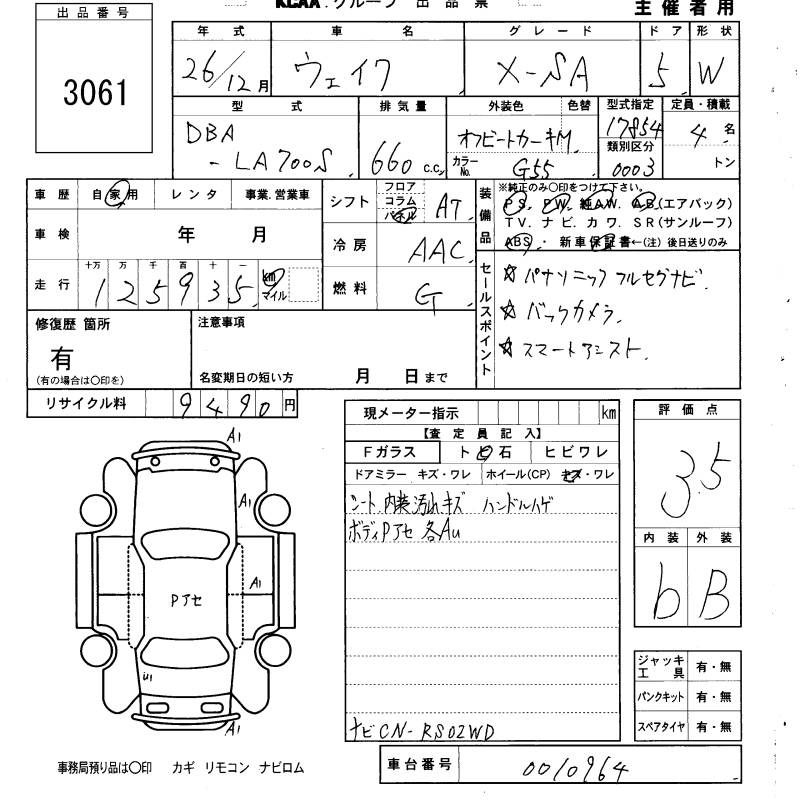 KCAA.グループ 出品票
主催者用
出品番号
3061
年式 車名 グレード ドア 形状
26/12月 ウェイク X-SA 5 W
型式 排気量 外装色 色替 型式指定 定員・積載
DBA
-LA700S 660 c.c. オフビートカーキM 17854 4名
カラーNo. G55 類別区分 0003 トン
車歴 自家用 レンタ 事業.営業車
シフト フロア コラム パネル AT
装備品 ※純正のみ〇印をつけて下さい。
PS. PW. 純AW. AB.(エアバック)
TV. ナビ. カワ. SR(サンルーフ)
ABS. ・ 新車保証書←(注) 後日送りのみ
車検 年 月
冷房 AAC
走行 十万 万 千 百 十 一 km マイル
125935
燃料 G
セールスポイント
☆パナソニックフルセグナビ.
☆バックカメラ.
☆スマートアシスト.
修復歴 箇所
有
(有の場合は〇印を)
注意事項
名変期日の短い方 月 日まで
リサイクル料 9490円
現メーター指示 km
【査定員記入】
Fガラス ト 石 ヒビワレ
ドアミラー キズ・ワレ ホイール(CP) キズ・ワレ
シート.内装汚れキズ ハンドルハゲ
ボディPアセ 各Au
ナビCN-RS02WD
評価点
3.5
内装 外装
b B
ジャッキ工具 有・無
パンクキット 有・無
スペアタイヤ 有・無
A1
A1
A1
Pアセ
U1
A1
事務局預り品は〇印 カギ リモコン ナビロム
車台番号 0010964